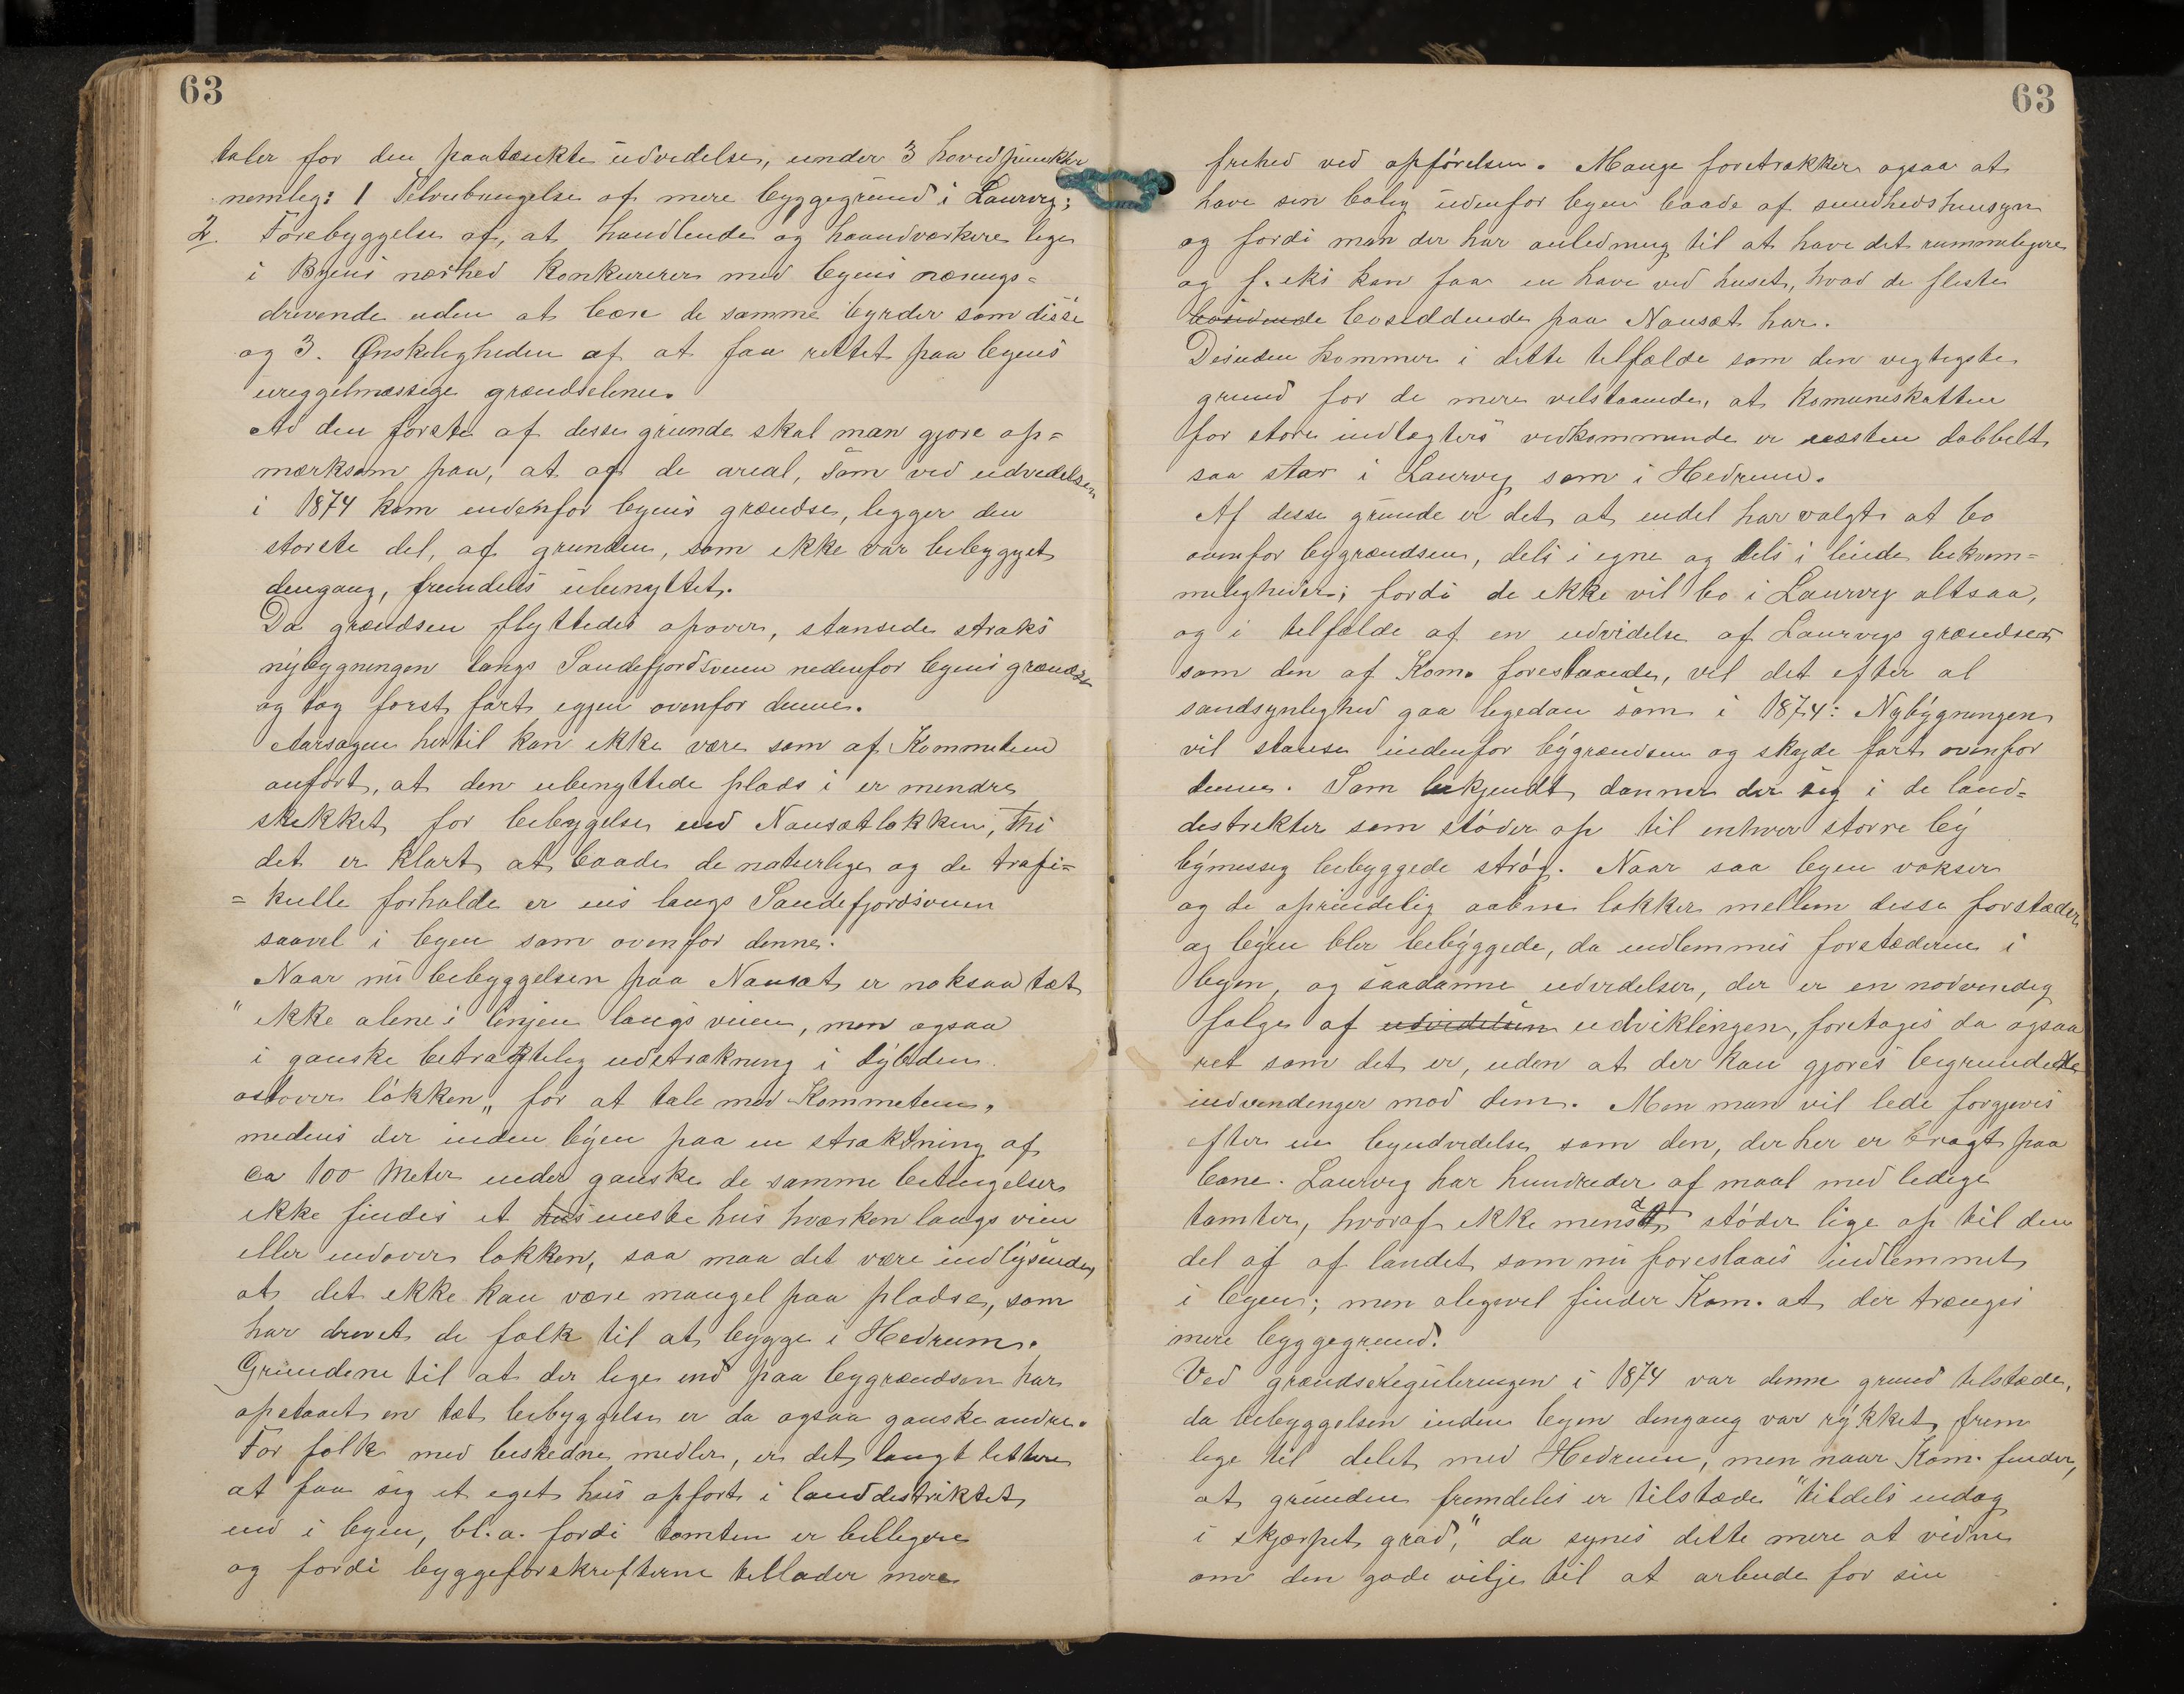 63
taler for den paatænkte udvidelse, under 3 hovedpunkter
nemleg: 1 Telveiebringelse af mere byggegrund i Laurvig;
2 Forebyggelse af, at handlende og haandværkere lige
i Byens nærhed konkurerer med byens nærings=
drivende uden at bære de samme byrder som disse
og 3. Ønskeligheden af at faa rettet paa byens
ureggelmæssige grændselinie.
Ad den første af disse grunde skal man gjøre op=
mærksom paa, at af de areal, som ved udvidelsen
i 1874 kom indenfor byens grændse, ligger den
største del, af grunden, som ikke var bebygget
dengang, fremdeles ubenyttet.
Da grændsen flyttedes opover, stansede straks
nybygningen langs Sandefjordsveien nedenfor byens grændse
og tog først fart igjen ovenfor denne.
Aarsagen hertil kan ikke være som af Kommiteen
anført, at den ubenyttede plads i er mindre
skikket for bebyggelse end Nansætløkken, thi
det er klart at baade de naturlige og de trafi=
= kulle forholde er ens langs Sandefjordsveien
saavel i byen som ovenfor denne.
Naar nu bebyggelsen paa Nansæt er noksaa tæt
" ikke alene i linjen langs veien, men ogsaa
i ganske betragtelig udstrækning i dybden
østover løkken „ for at tale med Kommiteen„
medens der inden byen paa en strækning af
ca 100 Meter under ganske de samme betingelser
ikke findes et hus eneste hus hværken langs veien
eller indover løkken, saa maa det være indlysende
at det ikke kan være mangel paa pladse, som
har drevet de folk til at bygge i Hedrum.
Grundene til at der lige ind paa bygrændsen har
opstaaet en tæt bebyggelse er da ogsaa ganske andre.
For folk med beskedne midler, er det langt lettere
at faa sig et eget hus opført i landdistriktet
end i byen, bl. a. fordi tomten er billigere
og fordi byggeforskrifterne tillader mere
63
frihed ved opførelsen. Mange foretrækker ogsaa at
have sin bolig udenfor byen baade af sundhedshensyn
og fordi man der har anledning til at have det rummeligere
og f. eks kan faa en have ved huset, hvad de fleste
bosidende bosiddende paa Nansæt har.
Desuden kommer i dette tilfælde som den vigtigste
grund for de mere velstaaende, at Komuneskatten
for store indtægters vedkommende er næsten dobbelt
saa stor i Laurvig som i Hedrum.
Af disse grunde er det at endel har valgt at bo
ovenfor bygrændsen, dels i egne og dels i leiede bekvem=
meligheder; fordi de ikke vil bo i Laurvig altsaa,
og i tilfælde af en udvidelse af Laurvigs grændser
som den af Kom. forestaaende, vil det efter al
sandsynlighed gaa ligedan som i 1874: Nybygningen
vil stanse indenfor bygrændsen og skyde fart ovenfor
denne. Som bekjendt danner der sig i de land=
distrikter som støder op til enhver større by
bymessig bebyggede strøg. Naar saa byen vokser
og de oprindelig aabne løkker mellem disse forstæder
og byen bler bebyggede, da indlemmes forstæderne i
byen, og saadanne udvidelser, der er en nødvendig
følge af udvidelsen udviklingen, foretages da ogsaa
ret som det er, uden at der kan gjøres begrundede
indvendinger mod dem. Men man vil lede forgjeves
efter en byudvidelse som den, der her er bragt paa
bane. Laurvig har hundreder af maal med ledige
tomter, hvoraf ikke mindst støder lige op til den
del af af landet som nu foreslaaes indlemmet
i byen; men aligevel finder Kom. at der trænges
mere byggegrund.
Ved grændsereguleringen i 1874 var denne grund tilstæde,
da bebyggelsen inden byen dengang var rykket frem
lige til delet med Hedrum, men naar Kom. finder,
at grunden fremdeles er tilstæde "tildels endog
i skjærpet grad," da synes dette mere at vidne
om den gode vilje til at arbeide for sin